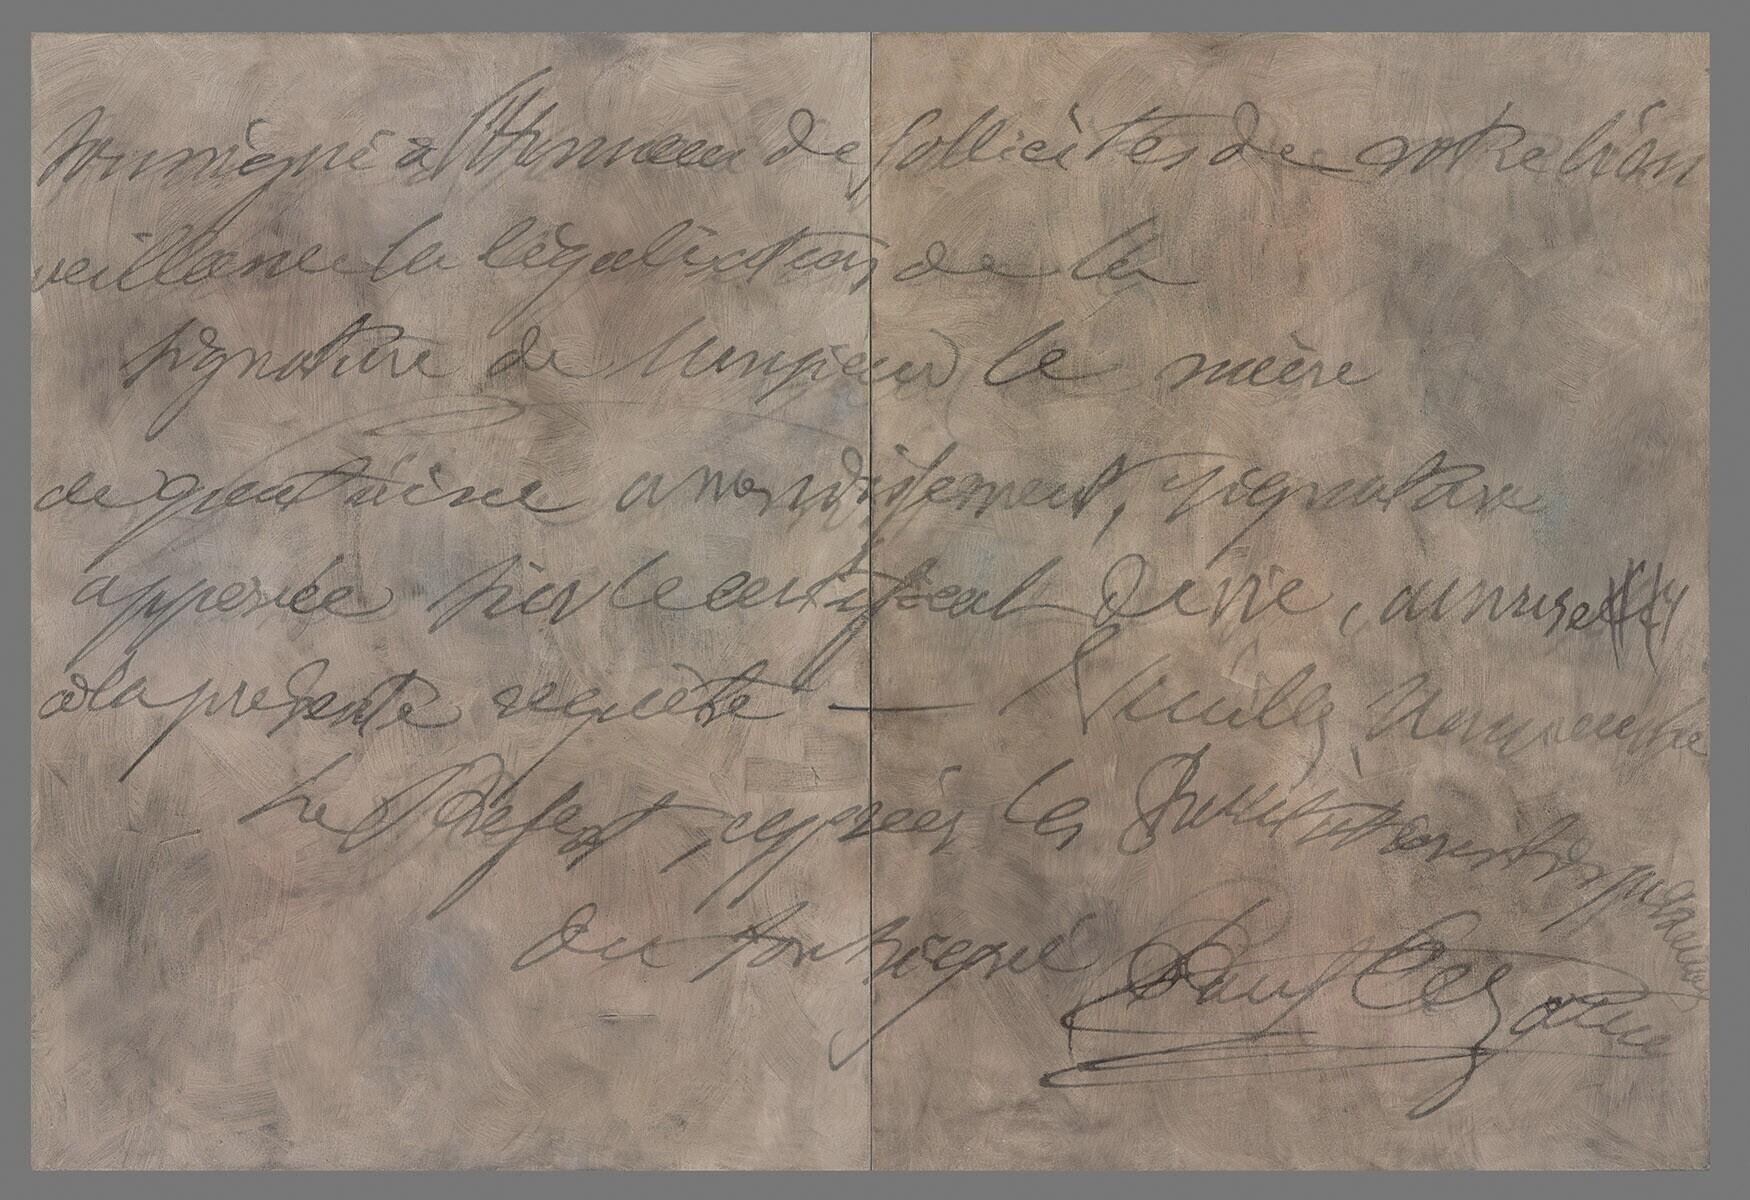 soussigné a l'Honneur de solliciter de votre bien
veillance la légalisation de la
signature de Monsieur le maire
de arrondissement, signature
apposée sur le certificat de vie, annexé
à la présente requête — Veuillez Monsieur le
Le Préfet, agréer les
du soussigné Paul Cezanne